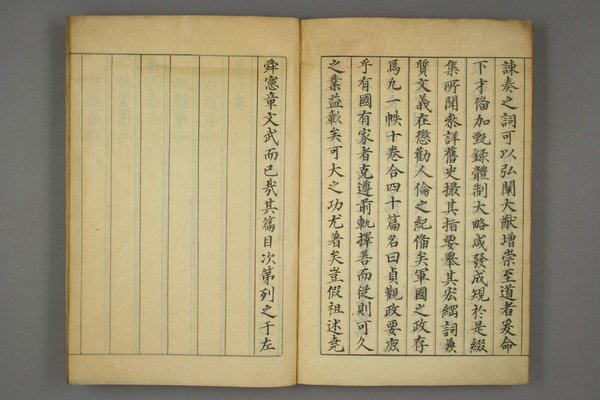 諫奏之詞可以弘闡大猷增崇至道者爰命
下才俻加甄録體制大略咸發成規於是綴
集所聞叅詳舊史撮其指要舉其宏綱詞兼
質文義在懲勸人倫之紀俻矣軍國之政存
焉凡一帙十卷合四十篇名曰貞觀政要庶
乎有國有家者克遵前軌擇善而從則可久
之業益彰矣可大之功尤著矣豈假祖述堯
舜憲章文武而已㢤其篇目次第列之于左